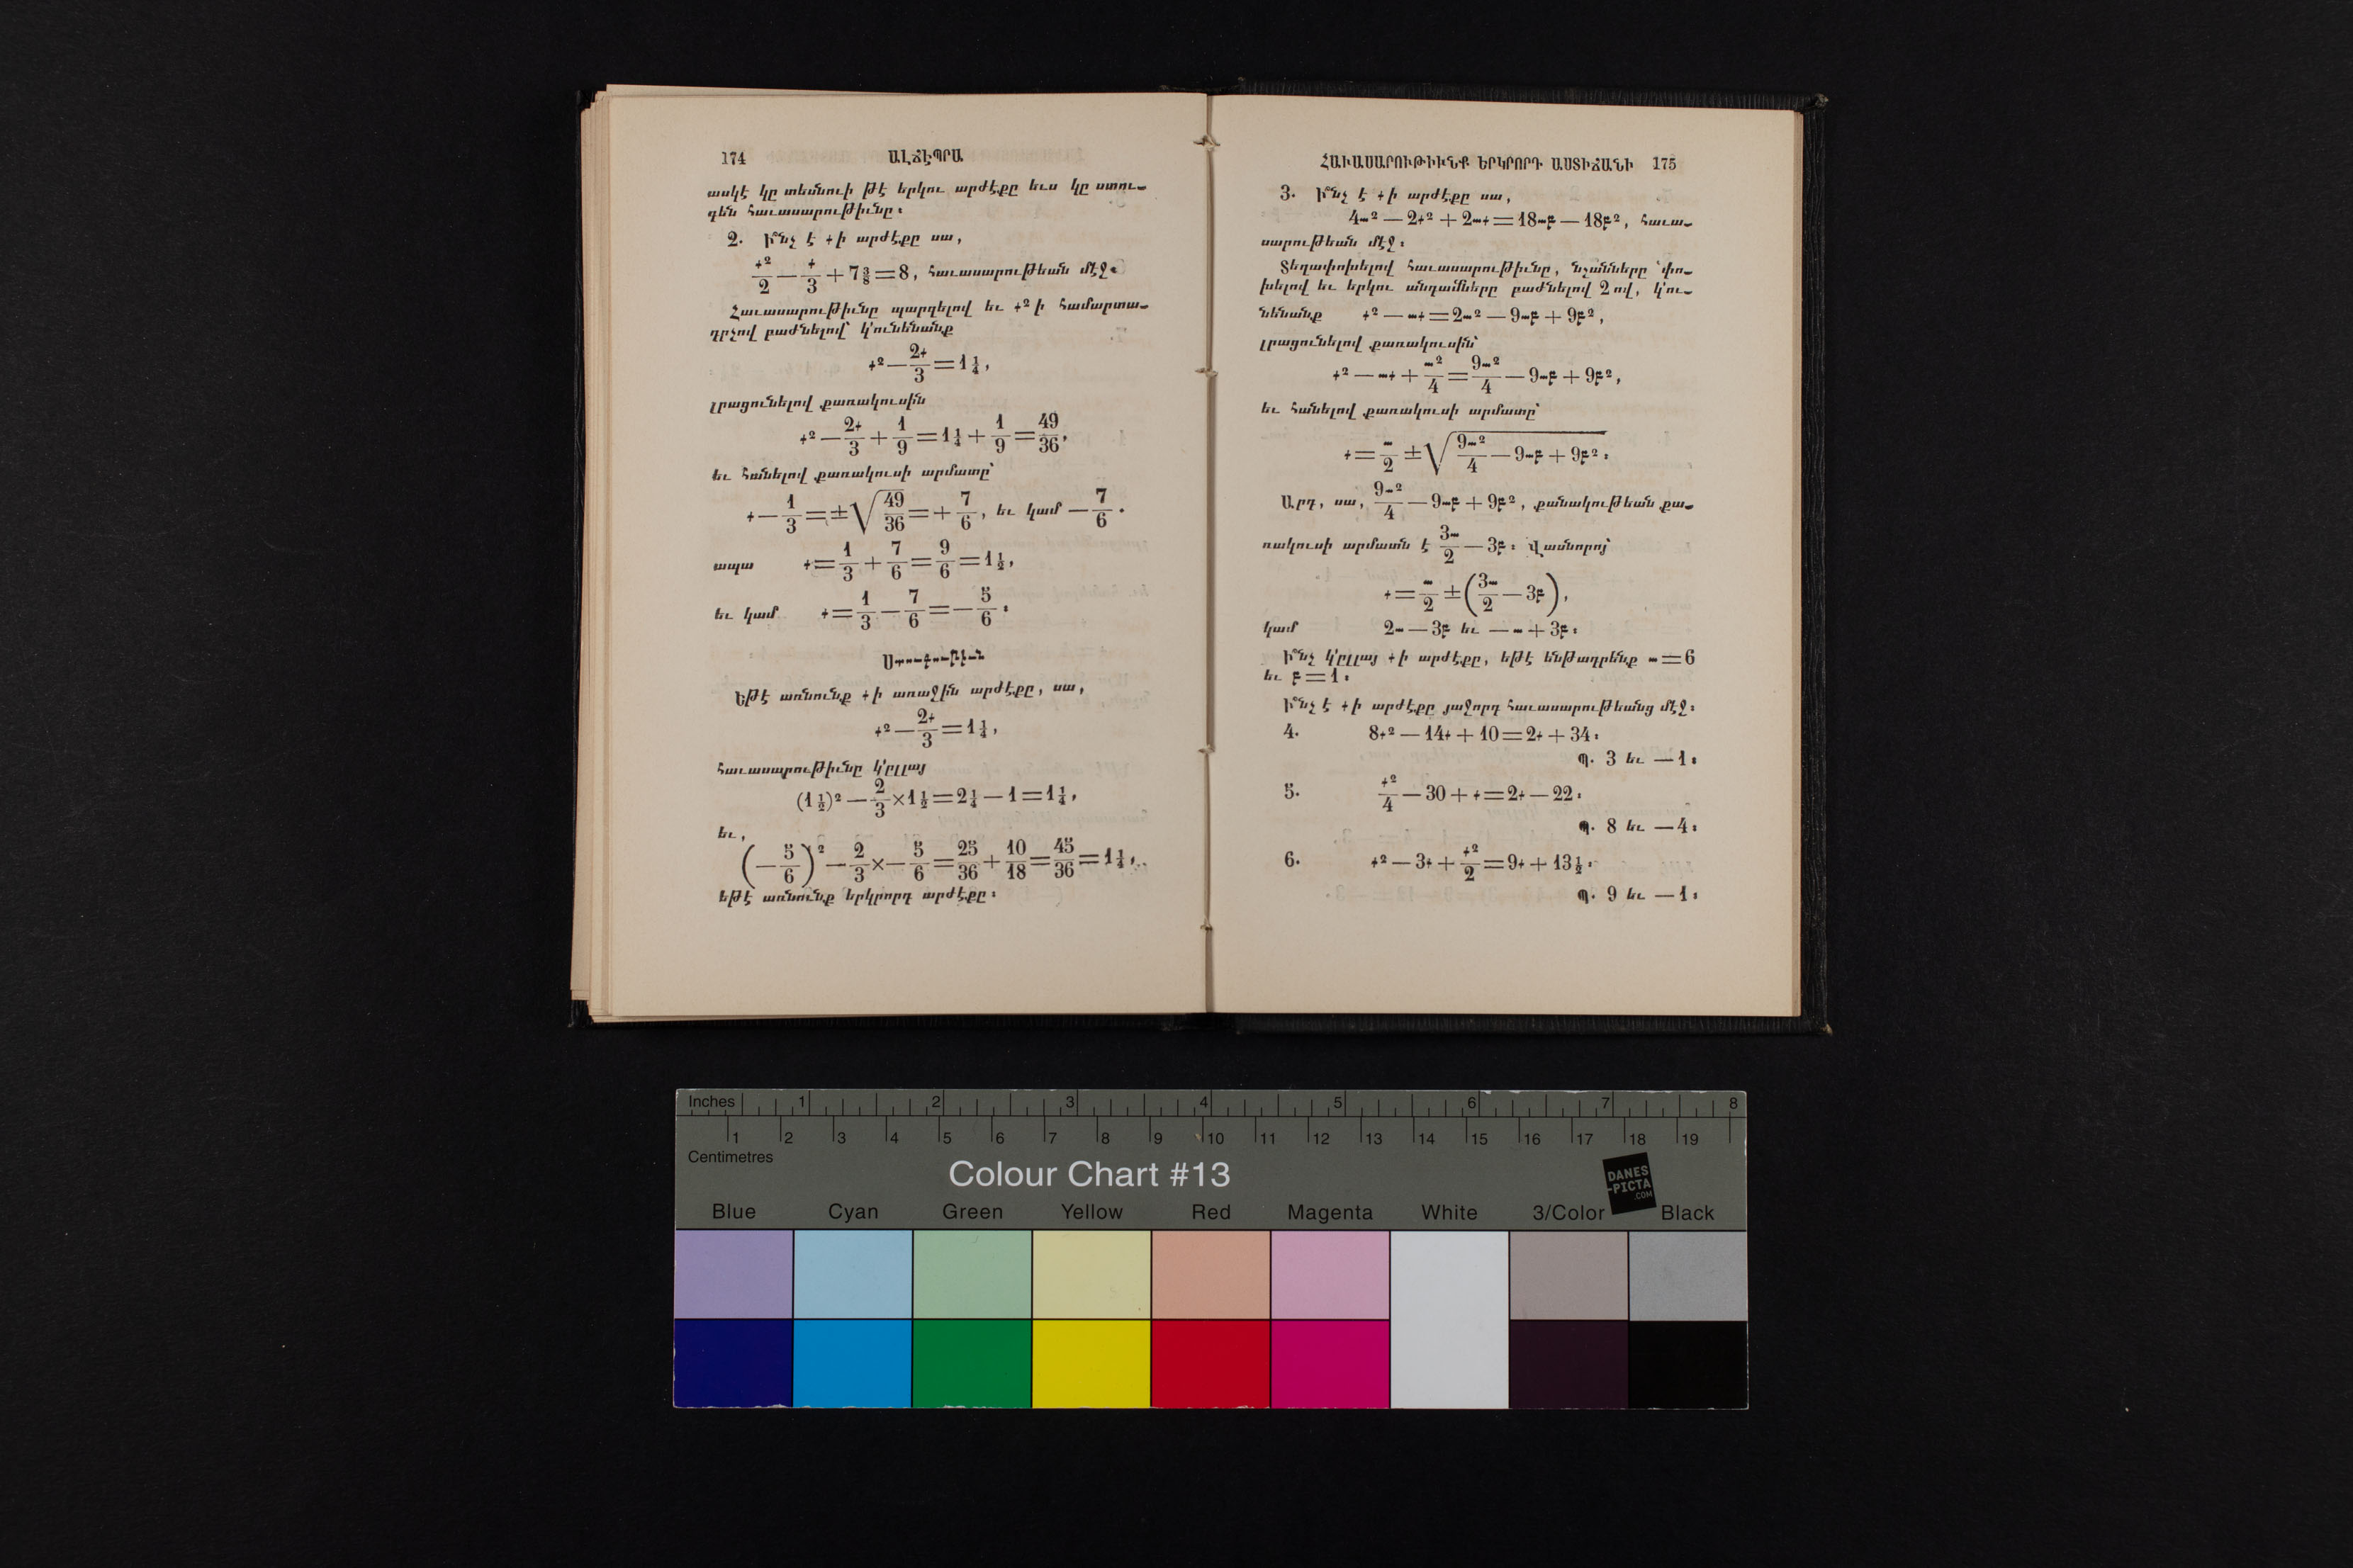 174 ԱԼՃԷՊՐԱ
ասկէ կը տեսնուի թէ երկու արժէքը եւս կը ստու-
գեն հաւասարութիւնը։
2. Ի՞նչ է +ի արժէքը սա,
+²/2 — +/3 + 7 3/8 = 8, հաւասարութեան մէջ։
Հաւասարութիւնը պարզելով եւ +²ի համարտա-
դրչով բաժնելով՝ կ'ունենանք
+² — 2+/3 = 1 1/4,
լրացունելով քառակուսին
+² — 2+/3 + 1/9 = 1 1/4 + 1/9 = 49/36,
եւ հանելով քառակուսի արմատը՝
+ — 1/3 = ± √49/36 = + 7/6, եւ կամ — 7/6.
ապա + = 1/3 + 7/6 = 9/6 = 1 1/2,
եւ կամ + = 1/3 — 7/6 = — 5/6։
Ստուգութիւն
Եթէ առնունք +ի առաջին արժէքը, սա,
+² — 2+/3 = 1 1/4,
հաւասարութիւնը կ'ըլլայ
(1 1/2)² — 2/3 × 1 1/2 = 2 1/4 — 1 = 1 1/4,
եւ,
(— 5/6)² — 2/3 × — 5/6 = 25/36 + 10/18 = 45/36 = 1 1/4,
եթէ առնունք երկրորդ արժէքը։
ՀԱՒԱՍԱՐՈՒԹԻՒՆՔ ԵՐԿՐՈՐԴ ԱՍՏԻՃԱՆԻ 175
3. Ի՞նչ է +ի արժէքը սա,
4ա² — 2+² + 2ա+ = 18աբ — 18բ², հաւա-
սարութեան մէջ։
Տեղափոխելով հաւասարութիւնը, նշանները փո-
խելով եւ երկու անդամները բաժնելով 2ով, կ'ու-
նենանք +² — ա+ = 2ա² — 9աբ + 9բ²,
լրացունելով քառակուսին՝
+² — ա+ + ա²/4 = 9ա²/4 — 9աբ + 9բ²,
եւ հանելով քառակուսի արմատը՝
+ = ա/2 ± √9ա²/4 — 9աբ + 9բ²։
Արդ, սա, 9ա²/4 — 9աբ + 9բ², քանակութեան քա-
ռակուսի արմատն է 3ա/2 — 3բ։ Վասնորոյ՝
+ = ա/2 ± (3ա/2 — 3բ),
կամ 2ա — 3բ եւ — ա + 3բ։
Ի՞նչ կ'ըլլայ +ի արժէքը, եթէ ենթադրենք ա = 6
եւ բ = 1։
Ի՞նչ է +ի արժէքը յաջորդ հաւասարութեանց մէջ։
4. 8+² — 14+ + 10 = 2+ + 34։
Պ. 3 եւ — 1։
5. +²/4 — 30 + + = 2+ — 22։
Պ. 8 եւ — 4։
6. +² — 3+ + +²/2 = 9+ + 13 1/2։
Պ. 9 եւ — 1։
Inches 1 2 3 4 5 6 7 8
1 2 3 4 5 6 7 8 9 10 11 12 13 14 15 16 17 18 19
Centimetres
Colour Chart #13
DANES
-PICTA
.COM
Blue Cyan Green Yellow Red Magenta White 3/Color Black